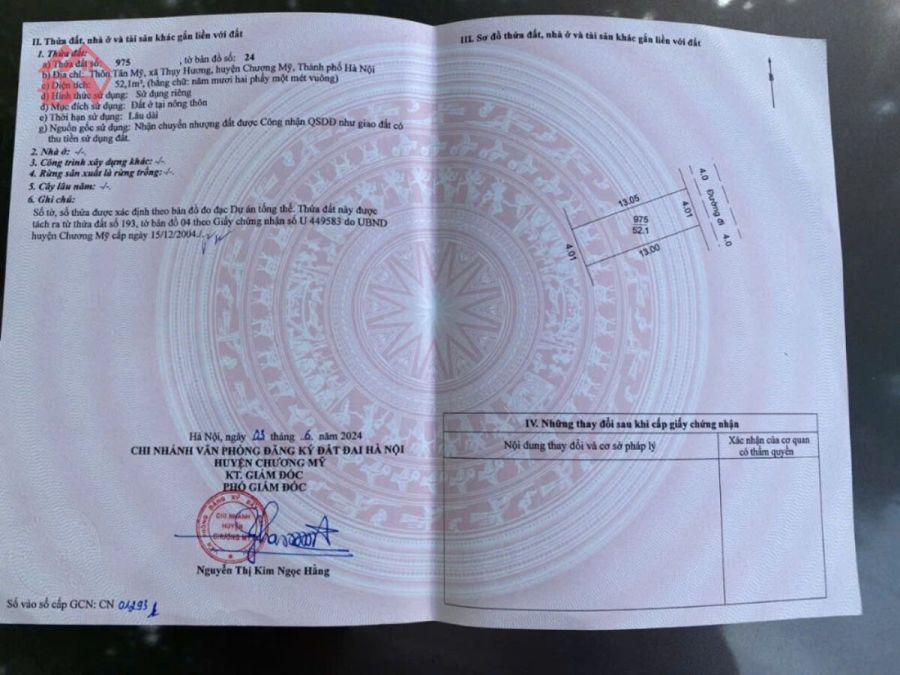 II. Thửa đất, nhà ở và tài sản khác gắn liền với đất
1. Thửa đất:
a) Thửa đất số: 975 , tờ bản đồ số: 24
b) Địa chỉ: Thôn Tân Mỹ, xã Thụy Hương, huyện Chương Mỹ, Thành phố Hà Nội
c) Diện tích: 52,1m², (bằng chữ: năm mươi hai phẩy một mét vuông)
d) Hình thức sử dụng: Sử dụng riêng
đ) Mục đích sử dụng: Đất ở tại nông thôn
e) Thời hạn sử dụng: Lâu dài
g) Nguồn gốc sử dụng: Nhận chuyển nhượng đất được Công nhận QSDĐ như giao đất có
thu tiền sử dụng đất.
2. Nhà ở: -/-.
3. Công trình xây dựng khác: -/-.
4. Rừng sản xuất là rừng trồng: -/-.
5. Cây lâu năm: -/-.
6. Ghi chú:
Số tờ, số thửa được xác định theo bản đồ đo đạc Dự án tổng thể. Thửa đất này được
tách ra từ thửa đất số 193, tờ bản đồ 04 theo Giấy chứng nhận số U 449583 do UBND
huyện Chương Mỹ cấp ngày 15/12/2004./.
Hà Nội, ngày 03 tháng 6 năm 2024
CHI NHÁNH VĂN PHÒNG ĐĂNG KÝ ĐẤT ĐAI HÀ NỘI
HUYỆN CHƯƠNG MỸ
KT. GIÁM ĐỐC
PHÓ GIÁM ĐỐC
CHI NHÁNH
HUYỆN
CHƯƠNG MỸ
Nguyễn Thị Kim Ngọc Hằng
Số vào sổ cấp GCN: CN
III. Sơ đồ thửa đất, nhà ở và tài sản khác gắn liền với đất
4.0
Đường đi
4.0
13.05
4.01
975
52.1
4.01
13.00
IV. Những thay đổi sau khi cấp giấy chứng nhận
Nội dung thay đổi và cơ sở pháp lý
Xác nhận của cơ quan
có thẩm quyền